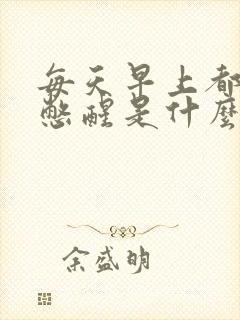 每天早上都
憋醒是什麼
余盛明